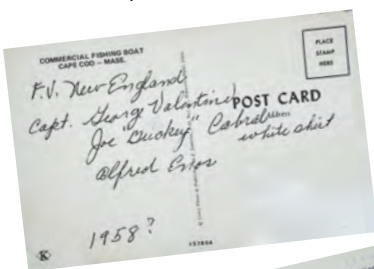 COMMERCIAL FISHING BOAT
CAPE COD — MASS.
PLACE
STAMP
HERE
F.V. New England
Capt. George Valentine
POST CARD
Joe "Duckey" Cabral
white shirt
Alfred Enos
1958?
K